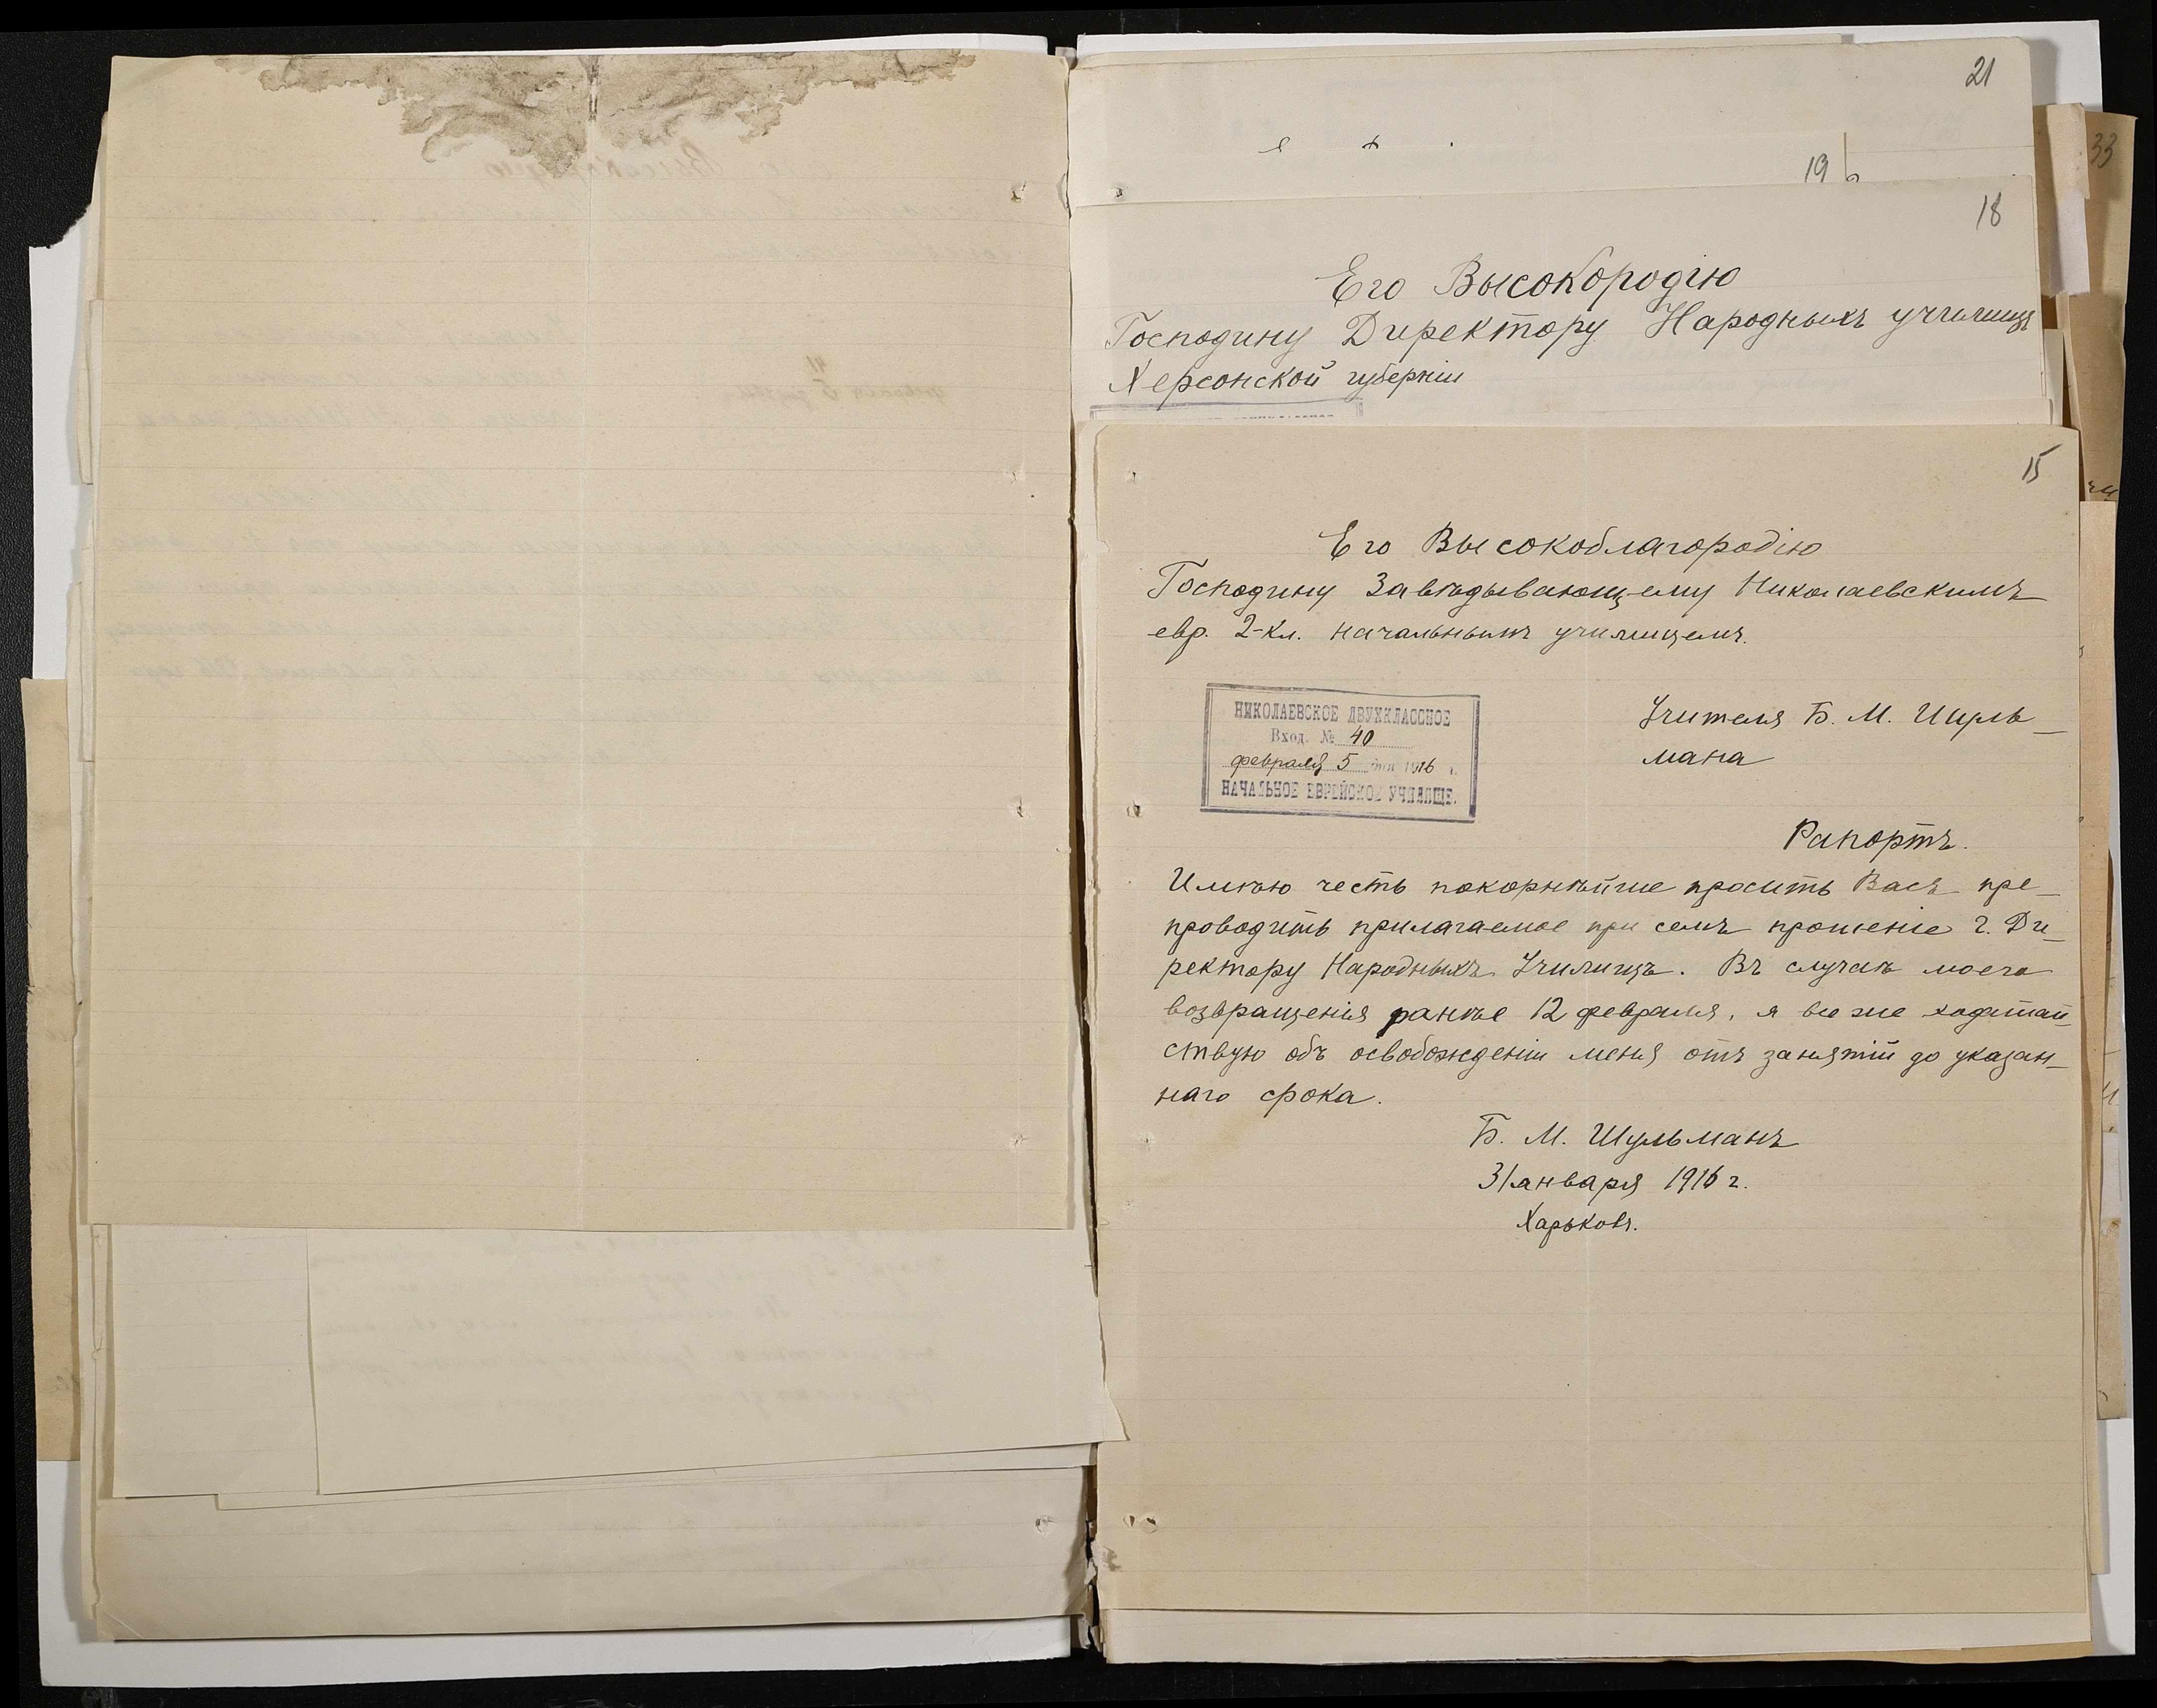 21
33
19
18
Его Высокородію
Господину Директору Народныхъ училищъ
Херсонской губерніи
15
Его Высокоблагородію
Господину Завѣдывающему Николаевскимъ
евр. 2-кл. начальнымъ училищемъ.
НИКОЛАЕВСКОЕ ДВУХКЛАССНОЕ
Вход. № 40
февраля 5 дня 1916 г.
НАЧАЛЬНОЕ ЕВРЕЙСКОЕ УЧИЛИЩЕ.
Учителя Б. М. Шуль-
мана
Рапортъ.
Имѣю честь покорнѣйше просить Васъ пре-
проводить прилагаемое при семъ прошеніе г. Ди-
ректору Народныхъ Училищъ. Въ случаѣ моего
возвращенія ранѣе 12 февраля, я все же ходатай-
ствую объ освобожденіи меня отъ занятій до указан-
наго срока.
Б. М. Шульманъ
31 января 1916 г.
Харьковъ.